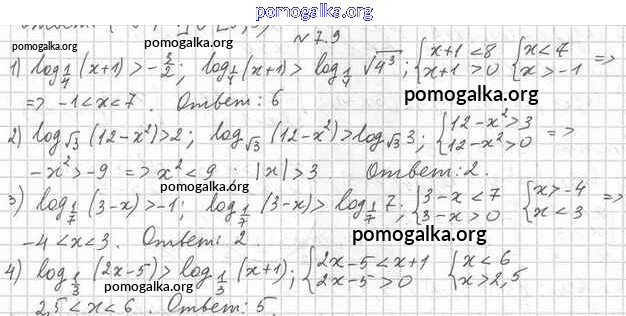 pomogalka.org
№ 7.9
1) log_{1/4} (x+1) > -3/2; log_{1/4} (x+1) > log_{1/4} √4³; {x+1 < 8 {x < 7 =>
{x+1 > 0 {x > -1
=> -1 < x < 7. Ответ: 6
pomogalka.org
pomogalka.org
2) log_{√3} (12-x²) > 2; log_{√3} (12-x²) > log_{√3} 3; {12-x² > 3 =>
{12-x² > 0
-x² > -9 => x² < 9; |x| > 3 Ответ: 2.
pomogalka.org
3) log_{1/7} (3-x) > -1; log_{1/7} (3-x) > log_{1/7} 7; {3-x < 7 {x > -4 =>
{3-x > 0 {x < 3
-4 < x < 3. Ответ: 2.
pomogalka.org
4) log_{1/3} (2x-5) > log_{1/3} (x+1); {2x-5 < x+1 {x < 6
{2x-5 > 0 {x > 2,5
pomogalka.org
2,5 < x < 6. Ответ: 5.